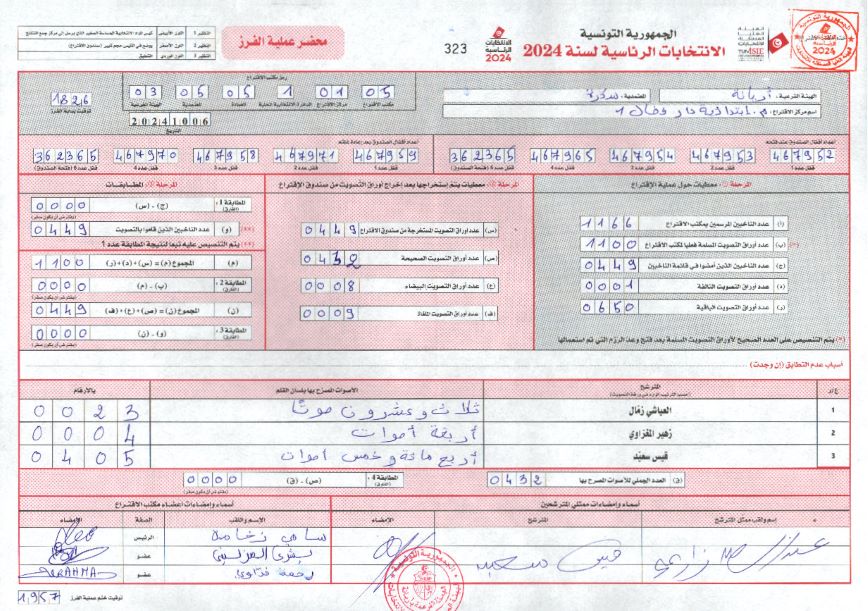 الجمهورية التونسية
الانتخابات الرئاسية لسنة 2024
الانتخابات الرئاسية 2024
323
محضر عملية الفرز
النظير 1 اللون الأبيض
النظير 2 اللون الأصفر
النظير 3 اللون الوردي التعليق
الهيئة الفرعية: أريانة المعتمدية: سكرة
اسم مركز الاقتراع: م. ابتدائية دار فضال 1
رمز مكتب الاقتراع
03 05 05 1 01 05
الهيئة الفرعية المعتمدية العمادة الدائرة الانتخابية المحلية مركز الاقتراع مكتب الاقتراع
1826
توقيت بداية الفرز
20241006
التاريخ
أعداد أقفال الصندوق عند فتحه
467952 467953 467954 467965 362365
قفل عدد 1 قفل عدد 2 قفل عدد 3 قفل عدد 4 قفل عدد 6 (فتحة الصندوق)
أعداد أقفال الصندوق بعد إعادة غلقه
467959 467971 467958 467970 362365
المرحلة 1: معطيات حول عملية الاقتراع
(أ) عدد الناخبين المرسمين بمكتب الاقتراع 1166
(ب) عدد أوراق التصويت المسلمة فعليا لمكتب الاقتراع 1100
(ج) عدد الناخبين الذين أمضوا في قائمة الناخبين 0449
(د) عدد أوراق التصويت التالفة 0001
(ر) عدد أوراق التصويت الباقية 0650
(*) يتم التنصيص على العدد الصحيح لأوراق التصويت المسلمة بعد فتح وعد الرزم التي تم استعمالها
معطيات يتم إستخراجها بعد إخراج أوراق التصويت من صندوق الإقتراع
(س) عدد أوراق التصويت المستخرجة من صندوق الاقتراع 0449
(ص) عدد أوراق التصويت الصحيحة 0432
(ع) عدد أوراق التصويت البيضاء 0008
(ف) عدد أوراق التصويت الملغاة 0009
المطابقات
المطابقة 1: (الفارق) (ج) - (س) 0000
(و) عدد الناخبين الذين قاموا بالتصويت 0449
(**) يتم التنصيص عليه تبعا لنتيجة المطابقة عدد 1
(م) المجموع (م) = (س)+(د)+(ر) 1100
المطابقة 2: (الفارق) (ب) - (م) 0000
(ن) المجموع (ن) = (ص)+(ع)+(ف) 0449
المطابقة 3: (الفارق) (و) - (ن) 0000
أسباب عدم التطابق (إن وجدت)
ع/ر المترشح الأصوات المصرح بها بلسان القلم بالأرقام
1 العياشي زمال ثلاث وعشرون صوتا 0023
2 زهير المغزاوي أربعة أصوات 0004
3 قيس سعيد أربع مائة وخمس أصوات 0405
(ق) العدد الجملي للأصوات المصرح بها 0432 المطابقة 4: (الفارق) (ص) - (ق) 0000
أسماء وإمضاءات ممثلي المترشحين
أسماء وإمضاءات أعضاء مكتب الاقتراع
إسم ولقب ممثل المترشح المترشح الإمضاء
الإسم واللقب الصفة الإمضاء
قيس سعيد
سامي الرئيس
بشرى عضو
رحمة عضو RAHMA
توقيت ختم عملية الفرز 1957